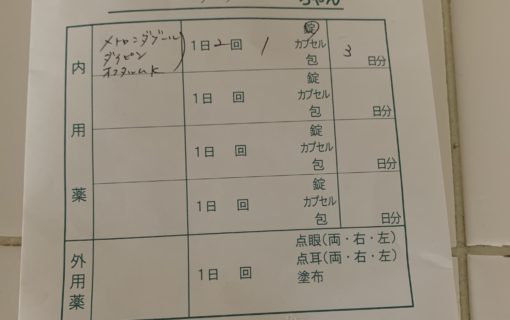 ちゃん
内用薬
メトロニダゾール
ダイピン
1日2回 1 錠
カプセル
包
3 日分
1日 回 錠
カプセル
包
日分
1日 回 錠
カプセル
包
日分
1日 回 錠
カプセル
包
日分
外用薬
1日 回
点眼(両・右・左)
点耳(両・右・左)
塗布